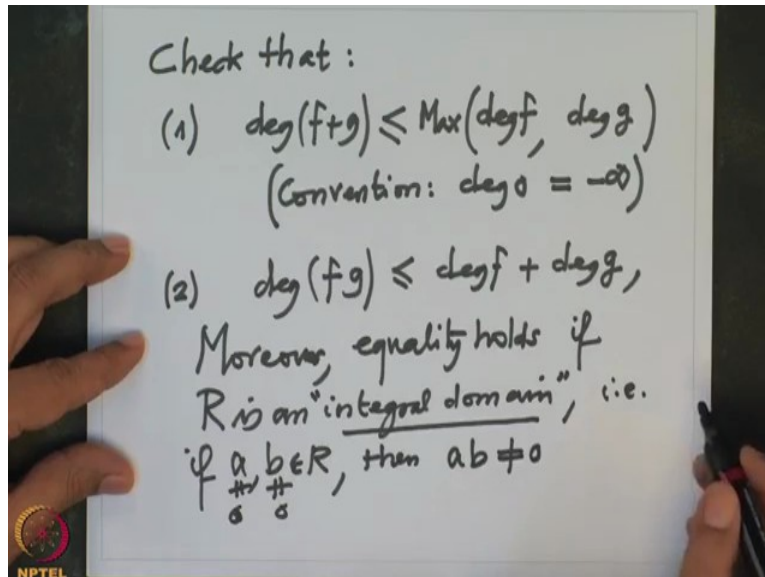 Check that :
(1) deg(f+g) ⩽ Max(deg f, deg g)
(Convention: deg 0 = -∞)
(2) deg(fg) ⩽ deg f + deg g,
Moreover, equality holds if
R is an "integral domain", i.e.
if a, b ∈ R, then ab ≠ 0
≠ ≠
0 0
NPTEL